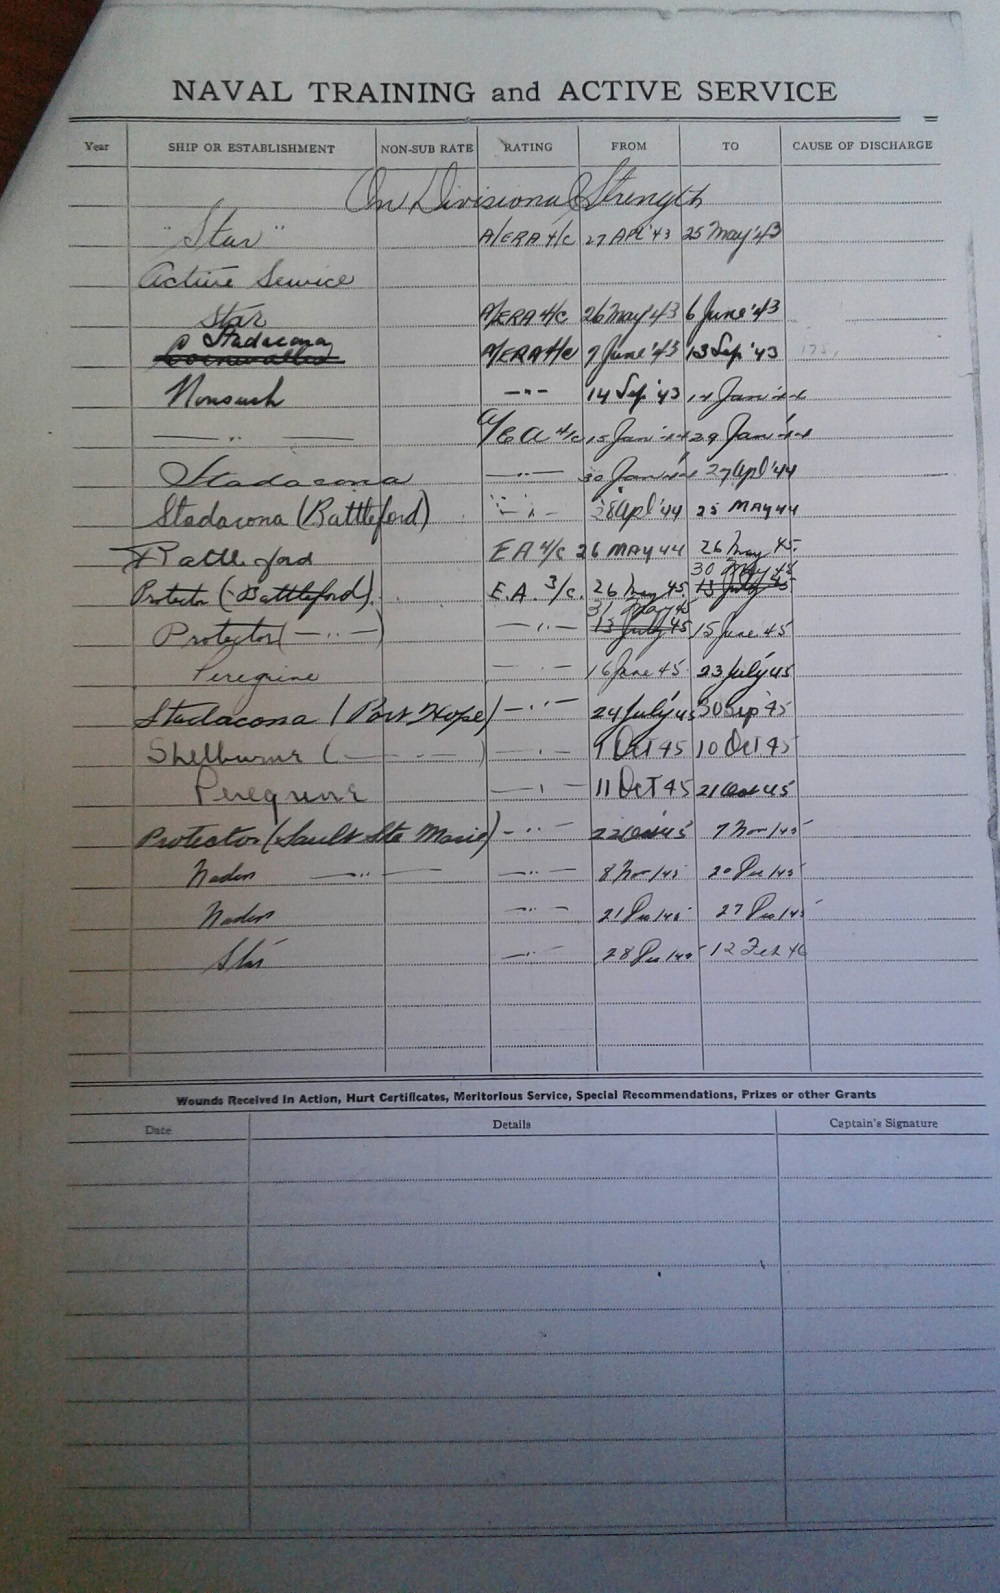 NAVAL TRAINING and ACTIVE SERVICE
Year SHIP OR ESTABLISHMENT NON-SUB RATE RATING FROM TO CAUSE OF DISCHARGE
On Divisional Strength
"Star" A/ERA 4/c 27 APL '43 25 May '43
Active Service
Star A/ERA 4/c 26 May '43 6 June '43
Stadacona
Cornwallis A/ERA 4/c 7 June '43 13 Sep '43
Nonsuch —"— 14 Sep '43 14 Jan '44
— " — A/EA 4/c 15 Jan '44 29 Jan '44
Stadacona —"— 30 Jan '44 27 Apl '44
Stadacona (Battleford) —"— 28 Apl '44 25 MAY 44
Battleford EA 4/c 26 MAY 44 26 May 45.
30 May 45
Protector (Battleford). E.A. 3/c. 26 May 45. 13 July 45
31 May 45
Protector (—"—) —"— 13 July 45 15 June 45
Peregrine —"— 16 June 45 23 July 45
Stadacona (Port Hope) —"— 24 July 45 30 Sep 45
Shelburne (— " —) —"— 1 Oct 45 10 Oct 45
Peregrine —"— 11 Oct 45 21 Oct 45
Protector (Sault Ste Marie) —"— 22 Oct 45 7 Nov/45
Naden —"— —"— 8 Nov/45 20 Dec/45
Naden —"— 21 Dec/45 27 Dec/45
Star —"— 28 Dec/45 12 Feb 46
Wounds Received in Action, Hurt Certificates, Meritorious Service, Special Recommendations, Prizes or other Grants
Date Details Captain's Signature